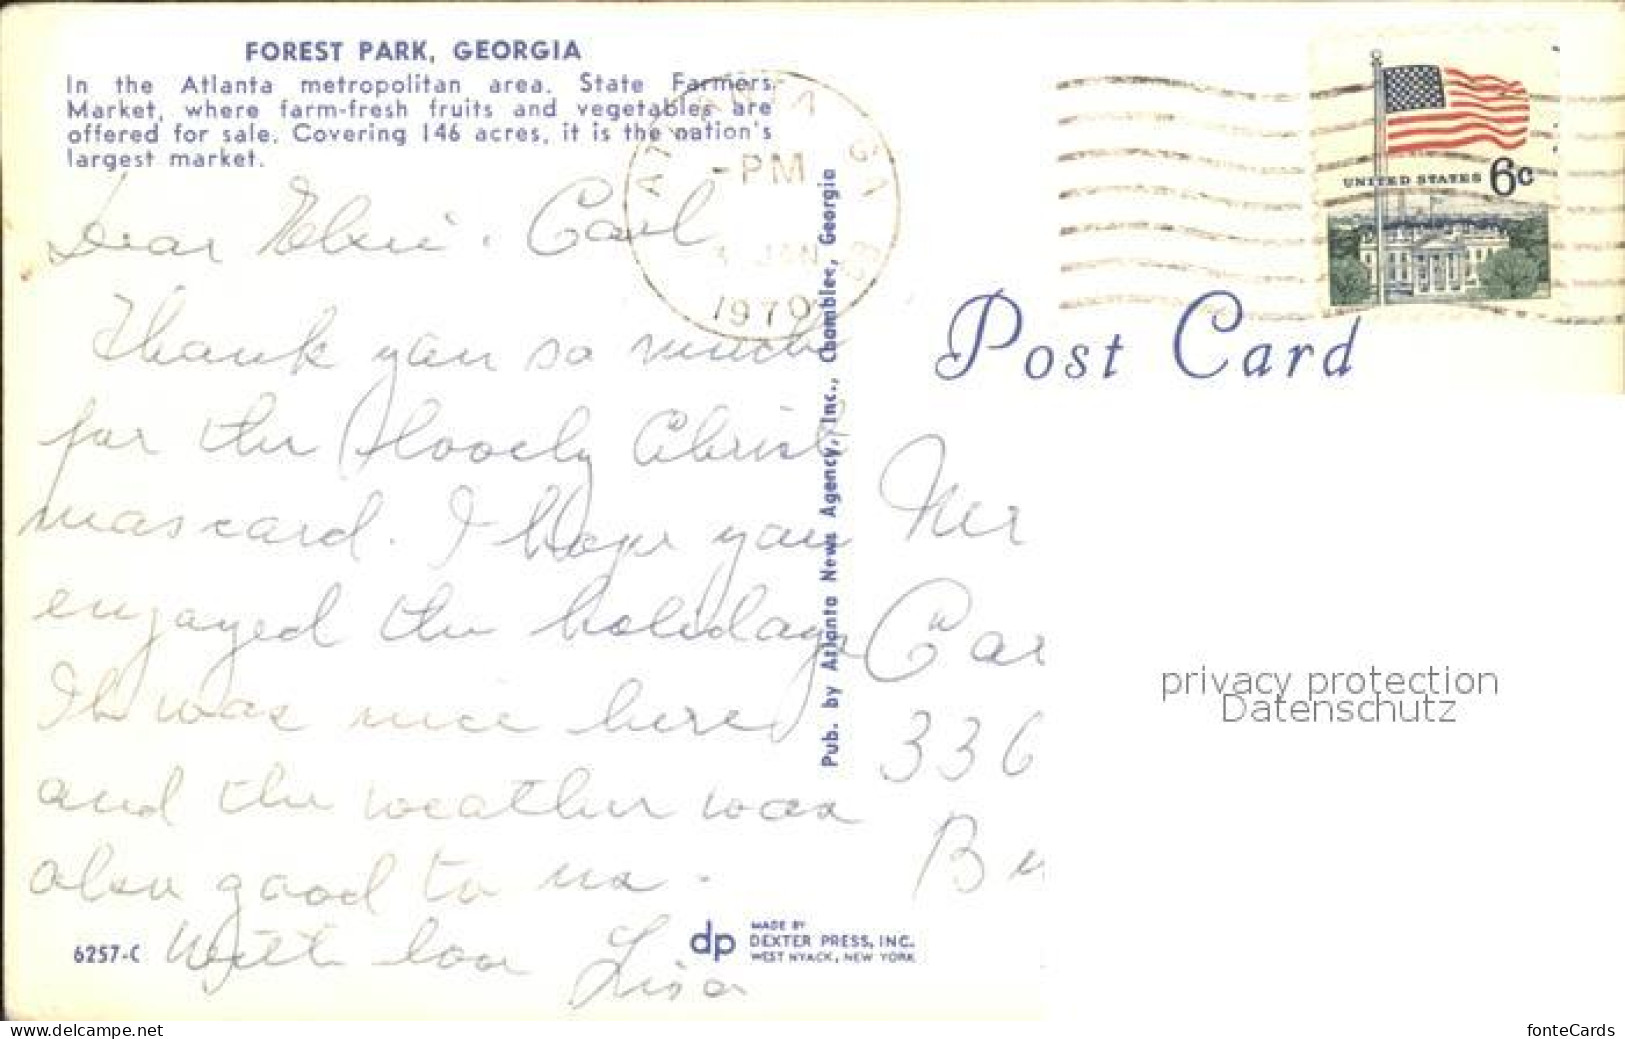 FOREST PARK, GEORGIA
In the Atlanta metropolitan area. State Farmers
Market, where farm-fresh fruits and vegetables are
offered for sale. Covering 146 acres, it is the nation's
largest market.
Dear Carl
Thank you so much
for the lovely Christ
mas card. I hope you
enjoyed the holidays
It was nice here
and the weather was
also good to us.
With love
Lisa
6257-C
dp
MADE BY
DEXTER PRESS, INC.
WEST NYACK, NEW YORK
Pub. by Atlanta News Agency, Inc., Chamblee, Georgia
PM
JAN
1970
UNITED STATES 6c
Post Card
Mr
Car
336
B
privacy protection
Datenschutz
www.delcampe.net
fonteCards